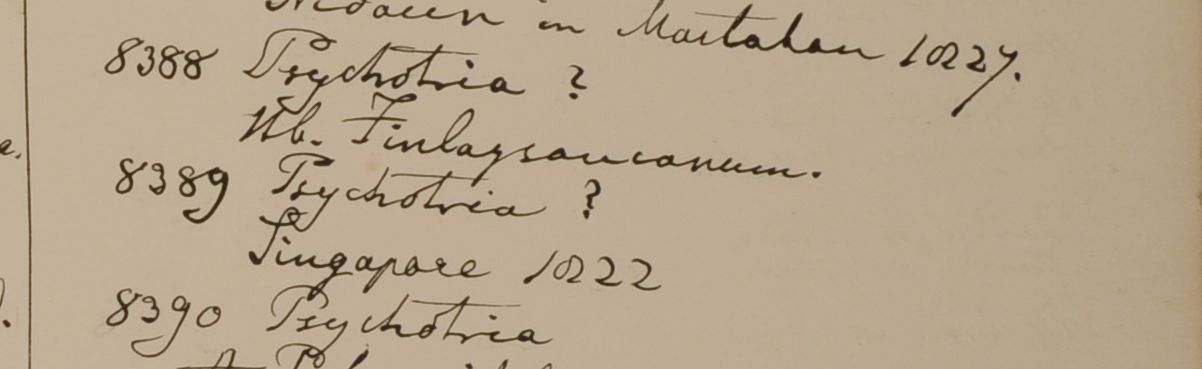 in Martaban 1827.
8388 Psychotria ?
Hb. Finlaysonianum.
8389 Psychotria ?
Singapore 1822
8390 Psychotria